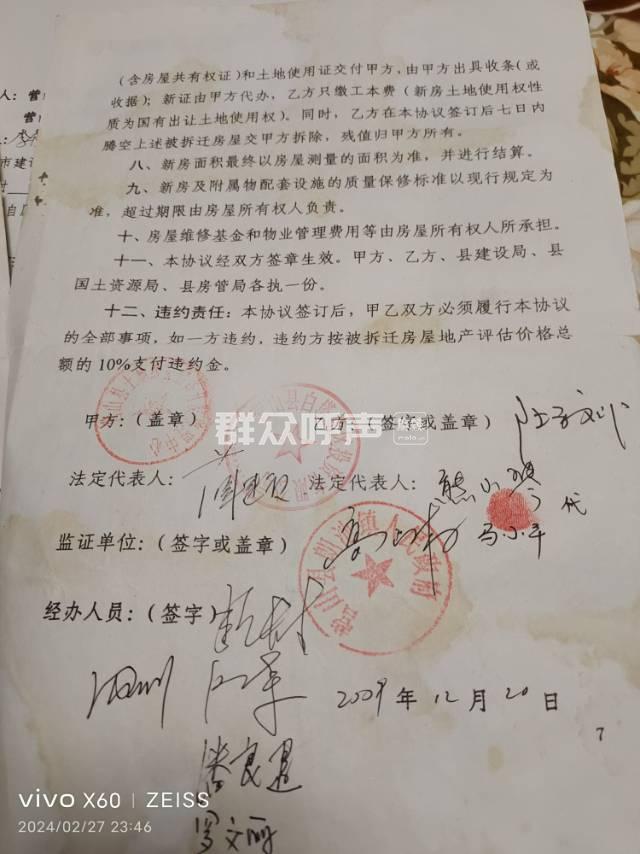 （含房屋共有权证）和土地使用证交付甲方，由甲方出具收条（或
收据）；新证由甲方代办，乙方只缴工本费（新房土地使用权性
质为国有出让土地使用权）。同时，乙方在本协议签订后七日内
腾空上述被拆迁房屋交甲方拆除，残值归甲方所有。
八、新房面积最终以房屋测量的面积为准，并进行结算。
九、新房及附属物配套设施的质量保修标准以现行规定为
准，超过期限由房屋所有权人负责。
十、房屋维修基金和物业管理费用等由房屋所有权人所承担。
十一、本协议经双方签章生效。甲方、乙方、县建设局、县
国土资源局、县房管局各执一份。
十二、违约责任：本协议签订后，甲乙双方必须履行本协议
的全部事项，如一方违约，违约方按被拆迁房屋地产评估价格总
额的10%支付违约金。
甲方：（盖章） 乙方：（签字或盖章）
群众呼声
法定代表人： 法定代表人：
代
监证单位：（签字或盖章） 马小平
镇人民政府
经办人员：（签字）
2009年12月20日
罗文丽
7
vivo X60 | ZEISS
2024/02/27 23:46